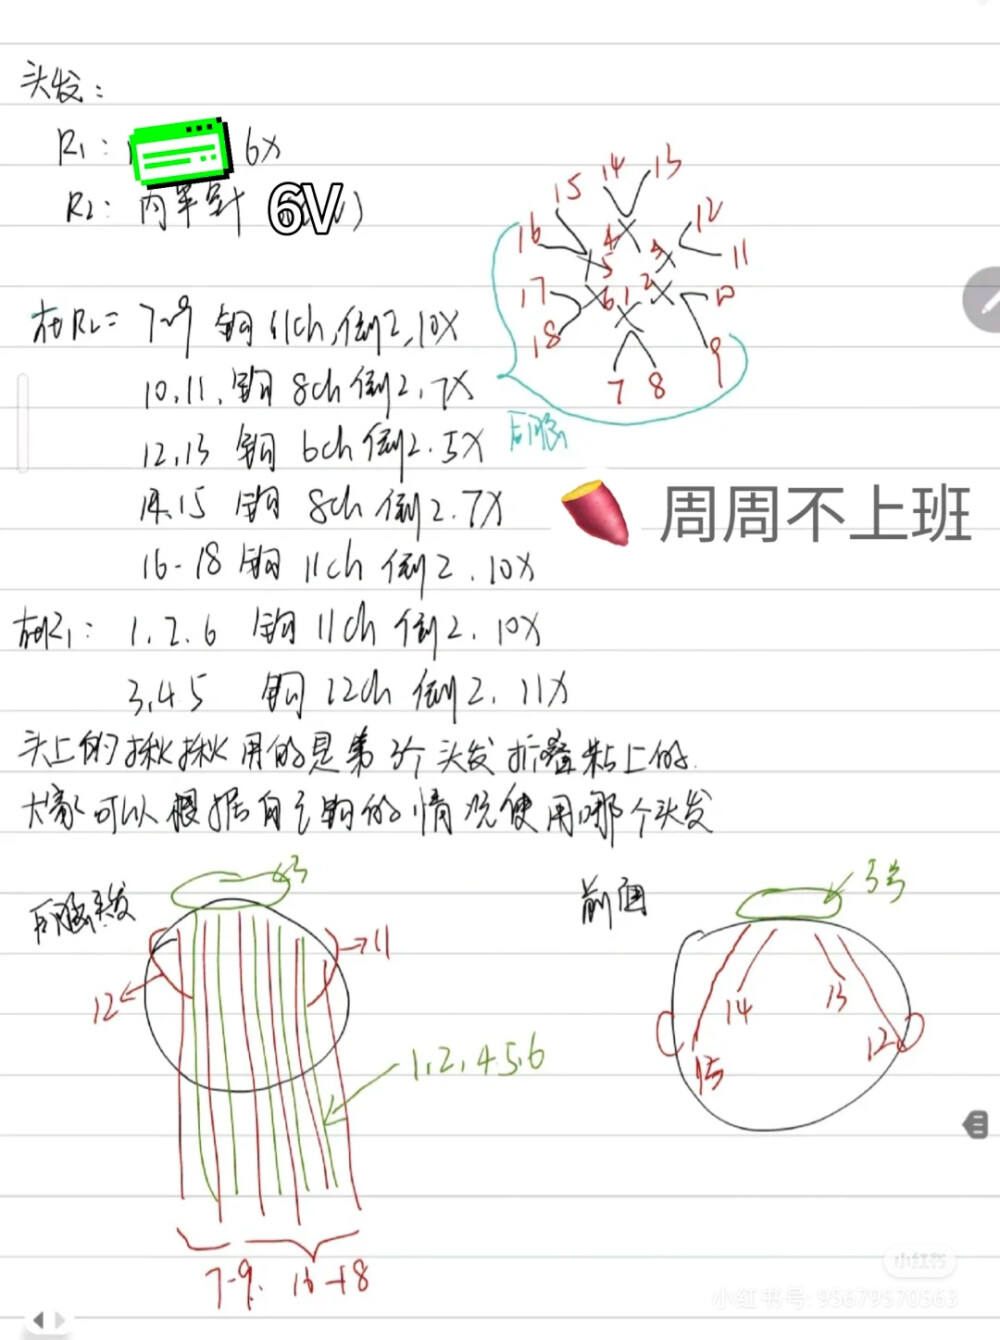 头发：
R1： 6X
R2：内半针 6V )
在R2= 7-9 钩 11ch,倒2,10X
10,11,钩 8ch 倒2,7X
12,13 钩 6ch 倒2.5X
14.15 钩 8ch 倒2.7X
16-18 钩 11ch 倒2.10X
在R1: 1.2.6 钩 11ch 倒2.10X
3,45 钩 12ch 倒2.11X
头上的揪揪用的是第3个头发折叠粘上的.
大家可以根据自己钩的情况使用哪个头发
14 13
15
16 12
4 3 11
5
17 6 1 2 10
18 9
7 8
后脑
周周不上班
后脑头发
3
11
12
1,2,45,6
7-9. 16-18
前面
3号
14 13
15 12
小红书
小红书号: 95679570563